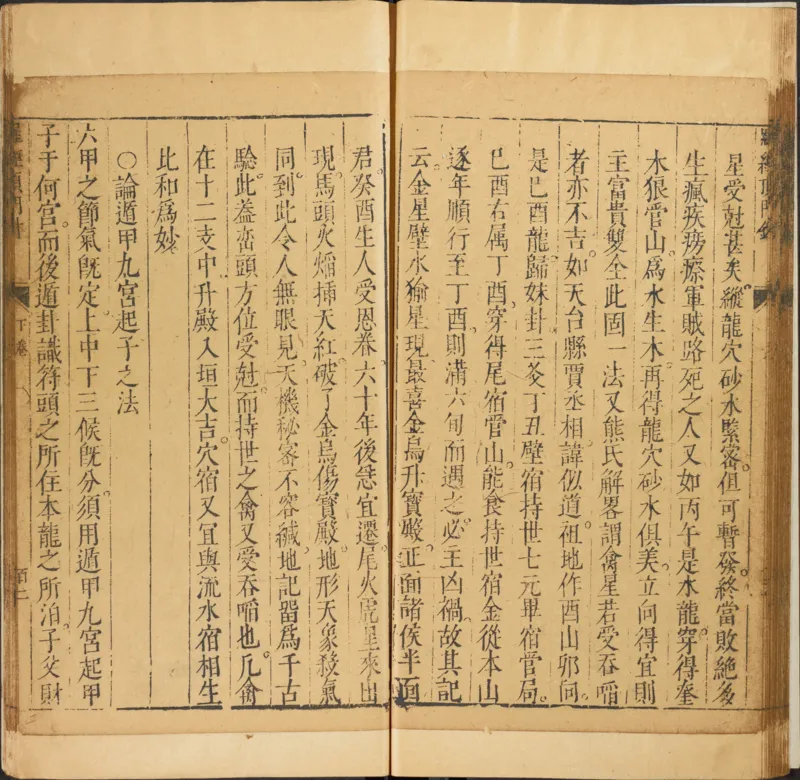 星受尅甚矣縱龍穴砂水緊密但可暫發終當敗絕多
生瘋疾癆瘵軍賊路死之人又如丙午是水龍穿得奎
木狼管山爲水生木再得龍穴砂水俱美立向得宜則
主富貴雙全此固一法又熊氏解畧謂禽星若受吞啗
者亦不吉如天台縣賈丞相諱似道祖地作酉山卯向
是巳酉龍歸妹卦三爻丁丑壁宿持世七元畢宿管局
巳酉右属丁酉穿得尾宿管山能食持世宿金從本山
逐年順行至丁酉則滿六旬而遇之必主凶禍故其記
云金星壁水㺄星現最喜金烏升寶殿正面諸侯半面
君癸酉生人受恩眷六十年後急宜遷尾火虎星來出
現馬頭火焰揷天紅破了金烏傷寶殿地形天象殺氣
同到此令人無眼見天機秘密不容緘地記畱爲千古
驗此葢巒頭方位受尅而持世之禽又受吞啗也凢禽
在十二支中升殿入垣大吉穴宿又宜與流水宿相生
比和爲妙
○論遁甲九宮起子之法
六甲之節氣旣定上中下三候旣分須用遁甲九宮起甲
子于何宮而後遁卦識符頭之所住本龍之所泊子父財
下卷
百二